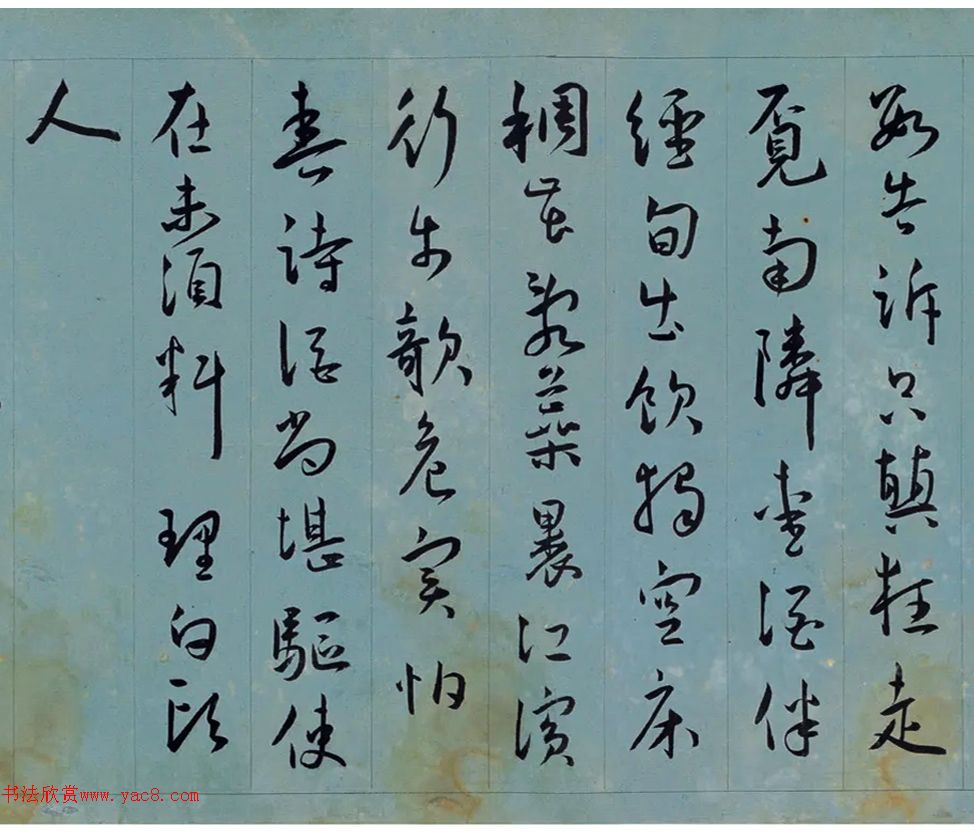 處告訴只顛狂走
覓南隣愛酒伴
經旬出飲獨空床
稠花亂蘂裹江濱
行步欹危實怕
春詩酒尚堪驅使
在未須料理白頭
人
书法欣赏www.yac8.com